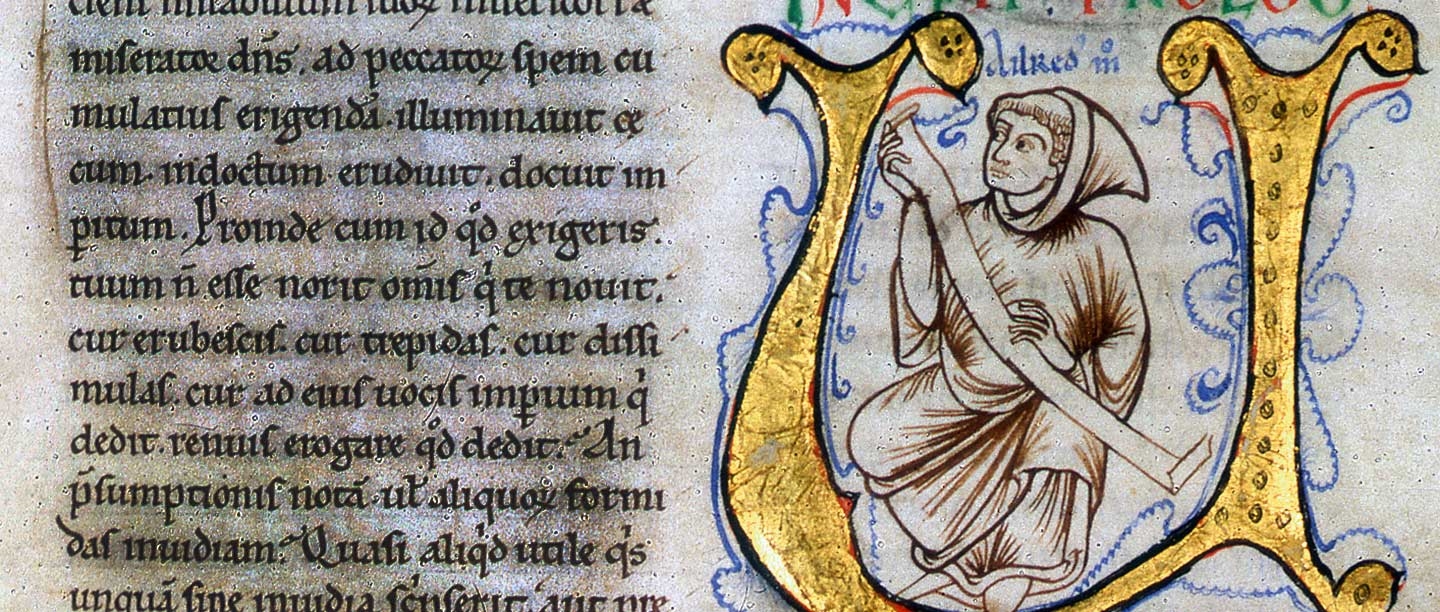 miseratoꝛ dn̄s. ad peccatoꝝ spem cu
mulatius erigendā. illuminauit cę
cum. indoctum erudiuit. docuit im
ꝑitum. Proinde cum id qᵈ exigeris.
tuum n̄ esse norit om̄is qⁱ te nouit.
cur erubescis. cur trepidas. cur dissi
mulas. cur ad eius uocis imꝑium qⁱ
dedit. renuis erogare qᵈ dedit? An
p̄sumptionis notā. ul̄ aliquoꝝ formi
das inuidiam? Quasi aliqⁱd utile qⁱs
unquā sine inuidia sc͛pserit. aut pre
INCIPIT PROLOG
U
Ailred' mō